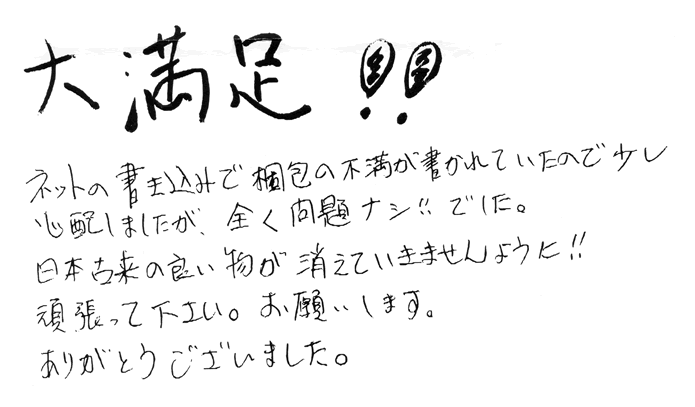 大満足!!
ネットの書き込みで梱包の不満が書かれていたので少し
心配しましたが、全く問題ナシ!!でした。
日本古来の良い物が消えていきませんように!!
頑張って下さい。お願いします。
ありがとうございました。